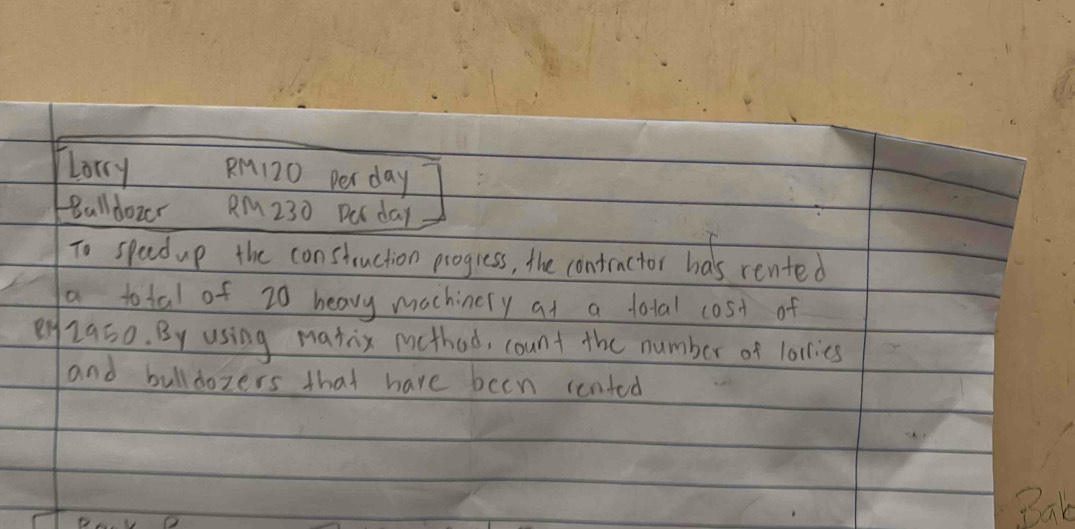 Lorry RM120 per day
Bulldozer RM 230 per day
To speed up the construction progress, the contractor has rented
a total of 20 heavy machinery at a total cost of
RM 2950. By using matrix method, count the number of lorries
and bulldozers that have been rented
Bak